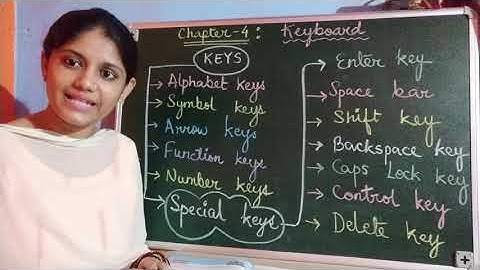 Chapter-4: Keyboard
KEYS
Alphabet keys
Symbol keys
Arrow keys
Function keys
Number keys
Special keys
Enter key
Space bar
Shift key
Backspace key
Caps Lock key
Control key
Delete key